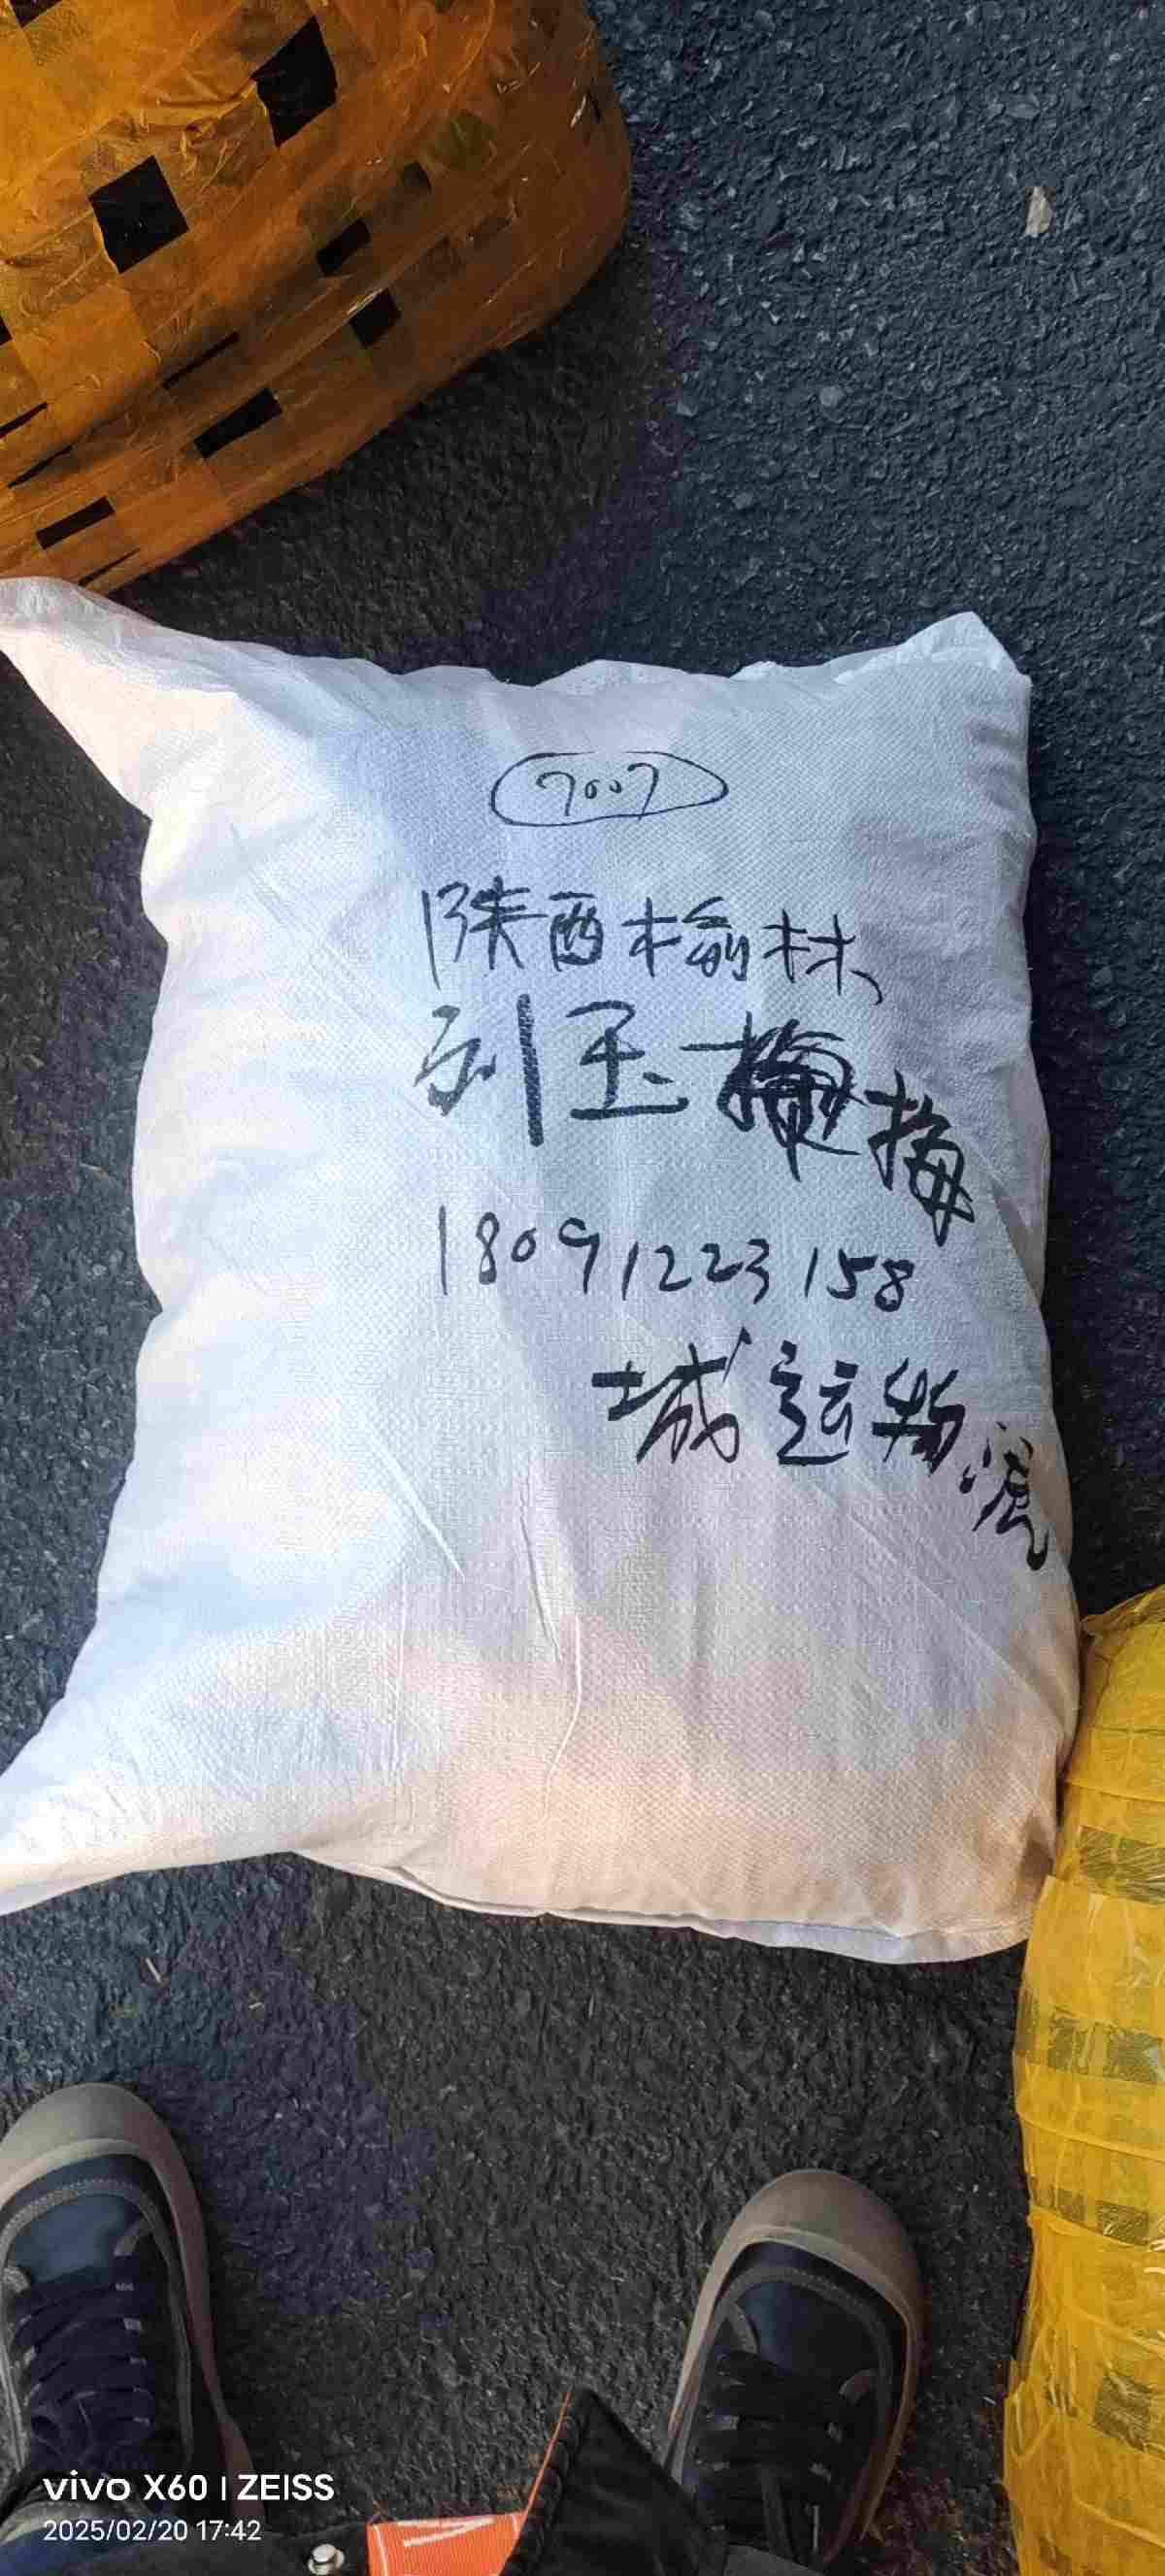 7007
陕西榆林
刘玉梅
18091223158
城运物流
vivo X60 | ZEISS
2025/02/20 17:42